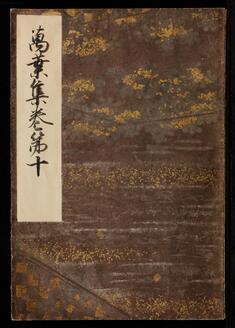 萬葉集卷第十